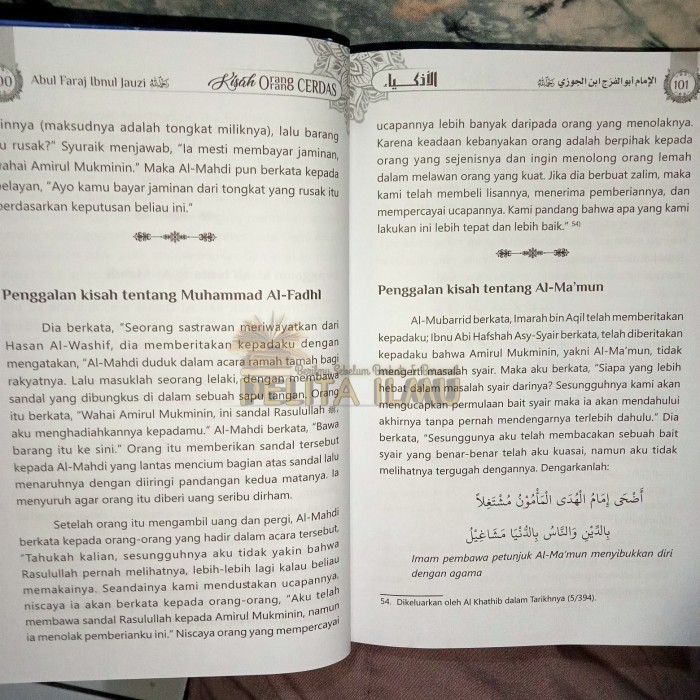 00 Abul Faraj Ibnul Jauzi Kisah Orang Orang CERDAS
innya (maksudnya adalah tongkat miliknya), lalu barang
u rusak?" Syuraik menjawab, "Ia mesti membayar jaminan,
wahai Amirul Mukminin." Maka Al-Mahdi pun berkata kepada
pelayan, "Ayo kamu bayar jaminan dari tongkat yang rusak itu
berdasarkan keputusan beliau ini."
Penggalan kisah tentang Muhammad Al-Fadhl
Dia berkata, "Seorang sastrawan meriwayatkan dari
Hasan Al-Washif, dia memberitakan kepadaku dengan
mengatakan, "Al-Mahdi duduk dalam acara ramah tamah bagi
rakyatnya. Lalu masuklah seorang lelaki, dengan membawa
sandal yang dibungkus di dalam sebuah sapu tangan. Orang
itu berkata, "Wahai Amirul Mukminin, ini sandal Rasulullah ﷺ,
aku menghadiahkannya kepadamu." Al-Mahdi berkata, "Bawa
barang itu ke sini." Orang itu memberikan sandal tersebut
kepada Al-Mahdi yang lantas mencium bagian atas sandal lalu
menaruhnya dengan diiringi pandangan kedua matanya. Ia
menyuruh agar orang itu diberi uang seribu dirham.
Setelah orang itu mengambil uang dan pergi, Al-Mahdi
berkata kepada orang-orang yang hadir dalam acara tersebut,
"Tahukah kalian, sesungguhnya aku tidak yakin bahwa
Rasulullah pernah melihatnya, lebih-lebih lagi kalau beliau
memakainya. Seandainya kami mendustakan ucapannya,
niscaya ia akan berkata kepada orang-orang, "Aku telah
membawa sandal Rasulullah kepada Amirul Mukminin, namun
ia menolak pemberianku ini." Niscaya orang yang mempercayai
الأذكياء الإمام أبو الفرج ابن الجوزي 101
ucapannya lebih banyak daripada orang yang menolaknya.
Karena keadaan kebanyakan orang adalah berpihak kepada
orang yang sejenisnya dan ingin menolong orang lemah
dalam melawan orang yang kuat. Jika dia berbuat zalim, maka
kami telah membeli lisannya, menerima pemberiannya, dan
mempercayai ucapannya. Kami pandang bahwa apa yang kami
lakukan ini lebih tepat dan lebih baik." 54)
Penggalan kisah tentang Al-Ma'mun
Al-Mubarrid berkata, Imarah bin Aqil telah memberitakan
kepadaku; Ibnu Abi Hafshah Asy-Syair berkata, telah diberitakan
kepadaku bahwa Amirul Mukminin, yakni Al-Ma'mun, tidak
mengerti masalah syair. Maka aku berkata, "Siapa yang lebih
hebat dalam masalah syair darinya? Sesungguhnya kami akan
mengucapkan permulaan bait syair maka ia akan mendahului
akhirnya tanpa pernah mendengarnya terlebih dahulu." Dia
berkata, "Sesungguhnya aku telah membacakan sebuah bait
syair yang benar-benar telah aku kuasai, namun aku tidak
melihatnya tergugah dengannya. Dengarkanlah:
أَضْحَى إِمَامُ الْهُدَى الْمَأْمُوْنُ مُشْتَغِلاً
بِالدِّيْنِ وَالنَّاسُ بِالدُّنْيَا مَشَاغِيْلُ
Imam pembawa petunjuk Al-Ma'mun menyibukkan diri
dengan agama
54. Dikeluarkan oleh Al Khathib dalam Tarikhnya (5/394).
PELITA ILMU